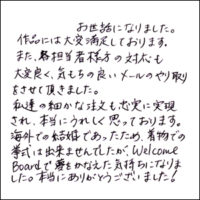 お世話になりました。
作品には大変満足しております。
また、担当者様方の対応も
大変良く、気もちの良いメールのやり取り
をさせて頂きました。
私達の細かな注文も忠実に実現
され、本当にうれしく思っております。
海外での結婚であったため、着物での
挙式は出来ませんでしたが、Welcome
Boardで夢をかなえた気持ちになりま
した。本当にありがとうございました!